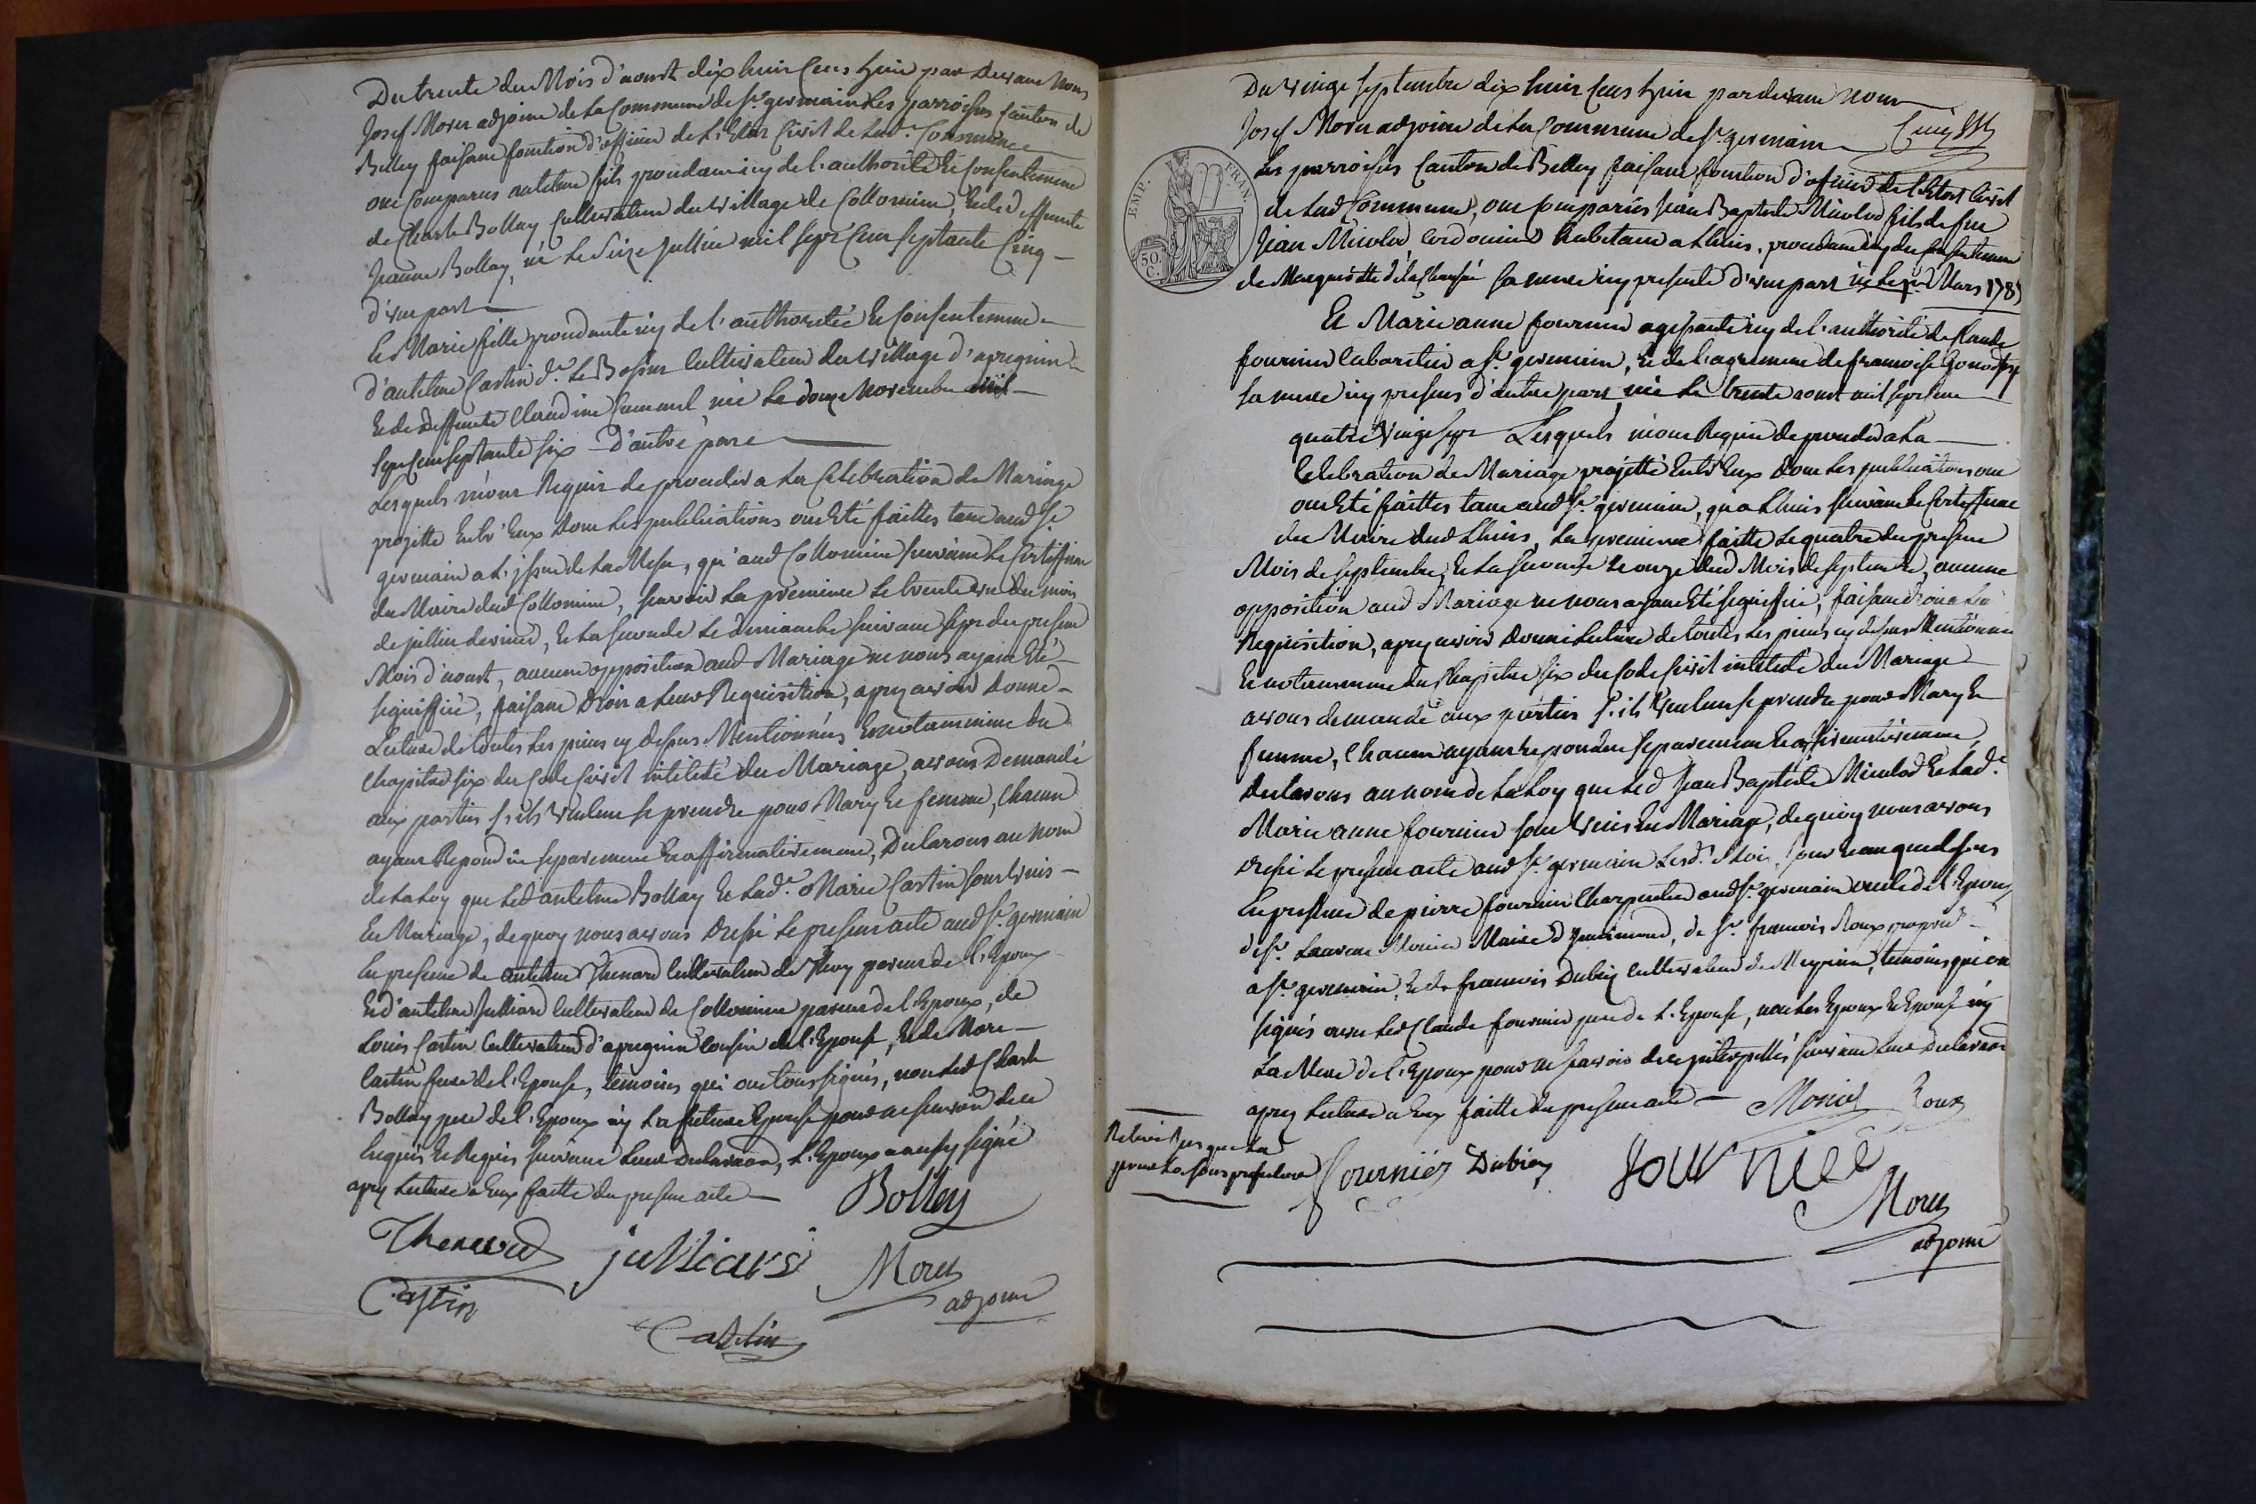 Du trente du Mois d'aoust dix huit Cens huit par Devant Nous
Josef Morez adjoint de la Commune de St. germain Les parroisses Canton de
Belley faisant fonction d'officier de L'Etat Civil de Lad.e Commune
ont Comparus antelme fils proccedant icy de l'authorité Et Consentement
de Charle Bollay Cultivateur du village de Collomieu, Et de deffunte
Jeanne Bollay, né Le Seize Juillet mil sept Cent septante Cinq
d'une part
Et Marie fille proccedante icy de l'authoritée Et Consentement
d'antelme Castin dt. Le Bossus Cultivateur du village d'apregnin
Et de deffunte Claudine née Le douze Novembre mil
sept Cent septante six D'autre part
Lesquels m'ont Requis de procceder a La Celebration de Mariage
projetté Entr'Eux Dont Les publications ont Eté faittes tant aud St.
germain a L'issue de La Messe, qu'aud Collomieu suivant Le Certifficat
du Maire dud Collomieu, sçavoir La premiere Le trente un du mois
de juillet dernier, Et La seconde Le dimanche suivant sept du present
Mois d'aoust, aucune opposition aud Mariage ne nous ayant Eté
signiffiée, faisant Droit a Leur Requisition, apres avoir Donné
Lecture de toutes Les pieces cy dessus Mentionnées Et notamment du
Chapitre six du Code Civil intitulé du Mariage, avons Demandé
aux parties s'ils veulent se prendre pour Mary Et femme, Chacun
ayant Repondu separement Et affirmativement, Declarons au nom
de La Loy que Led antelme Bollay Et Lad.e Marie Castin sont unis
En Mariage, de quoy nous avons Dressé Le present acte aud St. germain
En presence de antelme Thenard Cultivateur de parent de L'Epoux
Et d'antelme Julliard Cultivateur de Collomieu parent de l'Epoux, de
Louis Castin Cultivateur d'apregnin cousin de l'Epouse, Et de Marc
Castin frere de l'Epouse, temoins qui ont tous signés, non Led Charle
Bollay pere de l'Epoux ny La future Epouse pour ne sçavoir de ce
Enquis Et Requis suivant Leur Declaraon, L'Epoux a aussy signé
apres Lecture a Eux faitte du present acte
Bolley
Thenard julliard Morez
adjoint
Castin
Castin
Du vingt septembre dix huit Cens huit par devant nous
Josef Morez adjoint de La Commune de St. germain
Les parroisses Canton de Belley faisant fonction d'officier de l'Etat Civil
de Lad Commune, ont comparus Jean Baptiste Micolod fils de feu
Jean Micolod cordonnier habitant a Lhuis, proccedant icy du Consentement
de Margueritte sa mere icy presente d'une part né Le Mars 178
Et Marie anne fournier agissante icy de l'authorité de Claude
fournier laboureur a St. germain, Et de l'agrement de francoise
sa mere icy presens d'autre part née Le trente aoust mil sept cent
quatre vingt sept Lesquels m'ont Requis de procceder a La
Celebration de Mariage projetté Entr'Eux dont Les publications ont
ont Eté faittes tant aud St. germain, qu'a Lhuis suivant Le Certifficat
du Maire dud Lhuis, La premiere faitte Le quatre du present
Mois de septembre, Et La seconde Le onze dud Mois de septembre, aucune
opposition aud Mariage ne nous ayant Eté signiffiée, faisant droit a Leur
Requisition, apres avoir donné Lecture de toutes Les pieces cy dessus Mentionnées
Et notamment du Chapitre six du Code Civil intitulé du Mariage
avons demandé aux parties s'ils veulent se prendre pour Mary Et
femme, Chacun ayant Repondu separement Et affirmativement,
Declarons au nom de La Loy que Led Jean Baptiste Micolod Et Lad.e
Marie anne fournier sont unis En Mariage, de quoy nous avons
Dressé Le present acte aud St. germain Lesd. jour Et an que dessus
En presence de pierre fournier Charpentier aud St. germain oncle de l'Epouse
de Sr. Laurent Monier Maire de Sr. francois Roux propriet.
a St. germain, Et de francois Dubiez Cultivateur de temoins qui ont
signés avec Led Claude fournier pere de L'Epouse, non Les Epoux Et Epouse ny
La Mere de l'Epoux pour ne sçavoir de ce interpellés suivant Leur declaraon
apres Lecture a Eux faitte du present acte Monier Roux
pour La sous prefecture
fournier Dubiez fournier
Morez
adjoint
EMP. FRAN.
50.
C.